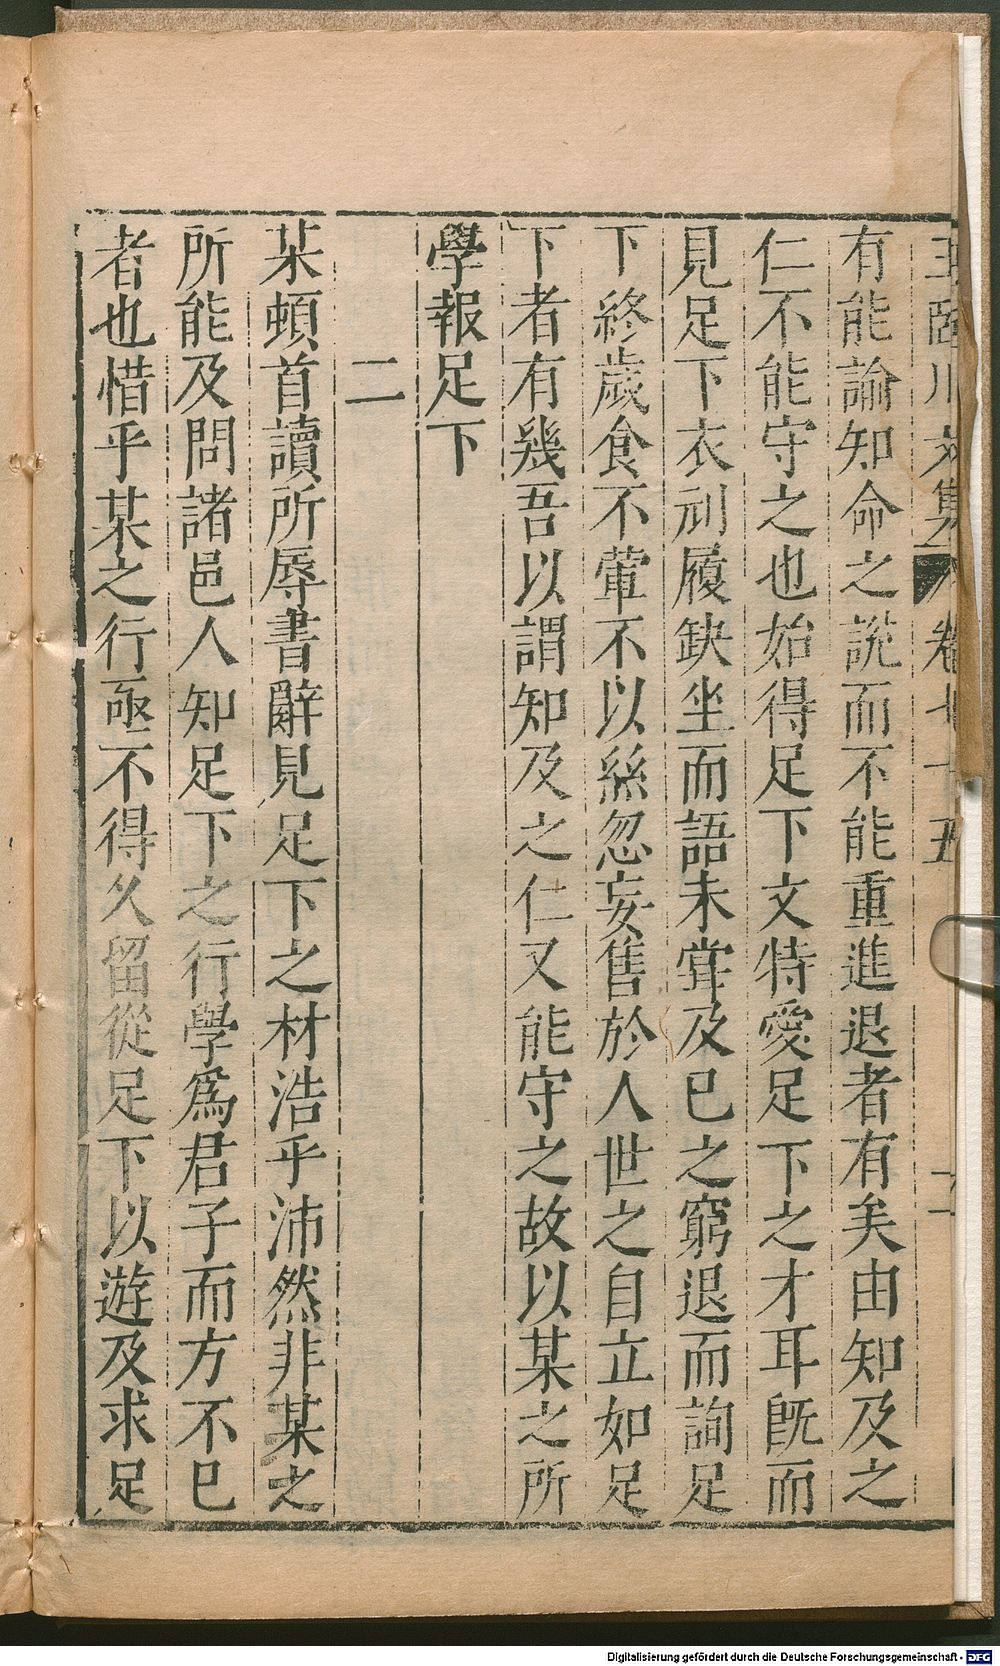 王臨川文集 卷七十五
有能論知命之說而不能重進退者有矣由知及之
仁不能守之也始得足下文特愛足下之才耳旣而
見足下衣刓履缺坐而語未甞及已之窮退而詢足
下終歲食不葷不以絲忽妄售於人世之自立如足
下者有幾吾以謂知及之仁又能守之故以某之所
學報足下
二
某頓首讀所辱書辭見足下之材浩乎沛然非某之
所能及問諸邑人知足下之行學爲君子而方不已
者也惜乎某之行亟不得久留從足下以遊及求足
Digitalisierung gefördert durch die Deutsche Forschungsgemeinschaft - DFG